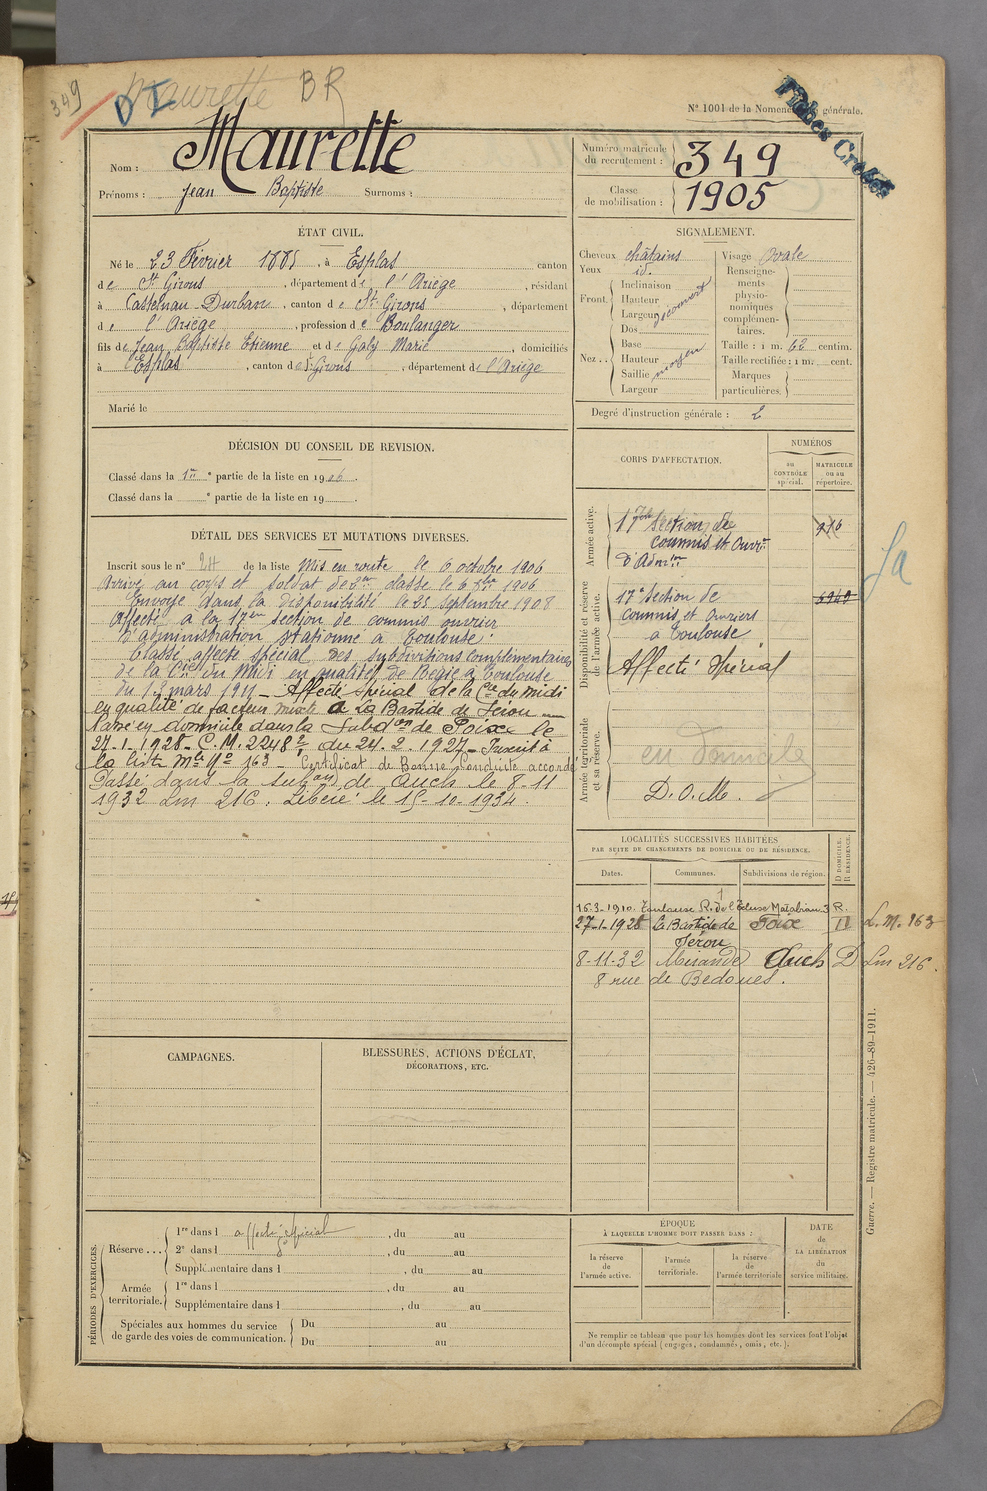 349
Maurette BR
Nº 1001 de la Nomenc générale.
Fiches Croisés
Nom : Maurette
Prénoms : Jean Baptiste Surnoms :
Numéro matricule du recrutement : 349
Classe de mobilisation : 1905
ÉTAT CIVIL.
Né le 23 Février 1885, à Esplas canton
de St Girons, département de l'Ariège, résidant
à Castelnau-Durban, canton de St Girons, département
de l'Ariège, profession de Boulanger
fils de Jean Baptiste Etienne et de Galy Marie, domiciliés
à Esplas, canton de St Girons, département de l'Ariège
Marié le
SIGNALEMENT.
Cheveux châtains Visage Ovale
Yeux id. Renseigne-
ments
physio-
nomiques
complémen-
taires.
Front. Inclinaison
Hauteur
Largeur découvert
Dos
Nez .. Base
Hauteur
Saillie moyen
Largeur
Taille : 1 m. 62 centim.
Taille rectifiée : 1 m. cent.
Marques
particulières.
Degré d'instruction générale : 2
DÉCISION DU CONSEIL DE REVISION.
Classé dans la 1re partie de la liste en 1906.
Classé dans la e partie de la liste en 19 .
DÉTAIL DES SERVICES ET MUTATIONS DIVERSES.
Inscrit sous le nº 24 de la liste Mis en route le 6 octobre 1906
Arrivé au corps et soldat de 2me classe le 6 8bre 1906
Envoyé dans la disponibilité le 25 Septembre 1908
Affecté à la 17me section de commis ouvrier
d'administration stationné à Toulouse.
Classé affecté spécial des subdivisions complémentaires
de la Cie du Midi en qualité de à Toulouse
du 13 mars 1919 – Affecté spécial de la Cie du midi
en qualité de facteur mixte à La Bastide de Sérou
Passé en domicile dans la Subdon de Foix le
27-1-1928 – C. M. 2248 2/1 du 24.2.1927 – Inscrit à
la liste Mle Nº 163 – Certificat de Bonne Conduite accordé
Passé dans la subon de Auch le 8-11
1932 Lm 216. Libéré le 15-10-1934.
CORPS D'AFFECTATION.
NUMÉROS
au CONTRÔLE spécial.
MATRICULE ou au répertoire.
Armée active.
17me Section de
commis et Ouvr.
d'Admon
916
Disponibilité et réserve de l'armée active.
17e Section de
commis et Ouvriers
à Toulouse
Affecté Spécial
Armée territoriale et sa réserve.
en domicile
D.O.M.
LOCALITÉS SUCCESSIVES HABITÉES
PAR SUITE DE CHANGEMENTS DE DOMICILE OU DE RÉSIDENCE.
D DOMICILE.
R RÉSIDENCE.
Dates. Communes. Subdivisions de région.
16-3-1910. Toulouse R. de l'Ecluse Matabiau 3 R.
27-1-1928 La Bastide de Foix D L. M. 163
Sérou
8-11-32 Mirande Auch D Lm 216.
8 rue de Bedoues.
CAMPAGNES.
BLESSURES, ACTIONS D'ÉCLAT,
DÉCORATIONS, ETC.
PÉRIODES D'EXERCICES.
Réserve ... 1re dans l affecté spécial, du au
2e dans l , du au
Supplémentaire dans l , du au
Armée territoriale. 1re dans l , du au
Supplémentaire dans l , du au
Spéciales aux hommes du service
de garde des voies de communication. Du au
Du au
ÉPOQUE
À LAQUELLE L'HOMME DOIT PASSER DANS :
la réserve de l'armée active.
l'armée territoriale.
la réserve de l'armée territoriale
DATE
de
LA LIBÉRATION
du
service militaire.
Ne remplir ce tableau que pour les hommes dont les services font l'objet
d'un décompte spécial (engagés, condamnés, omis, etc.).
Guerre. — Registre matricule. — 426-89-1911.